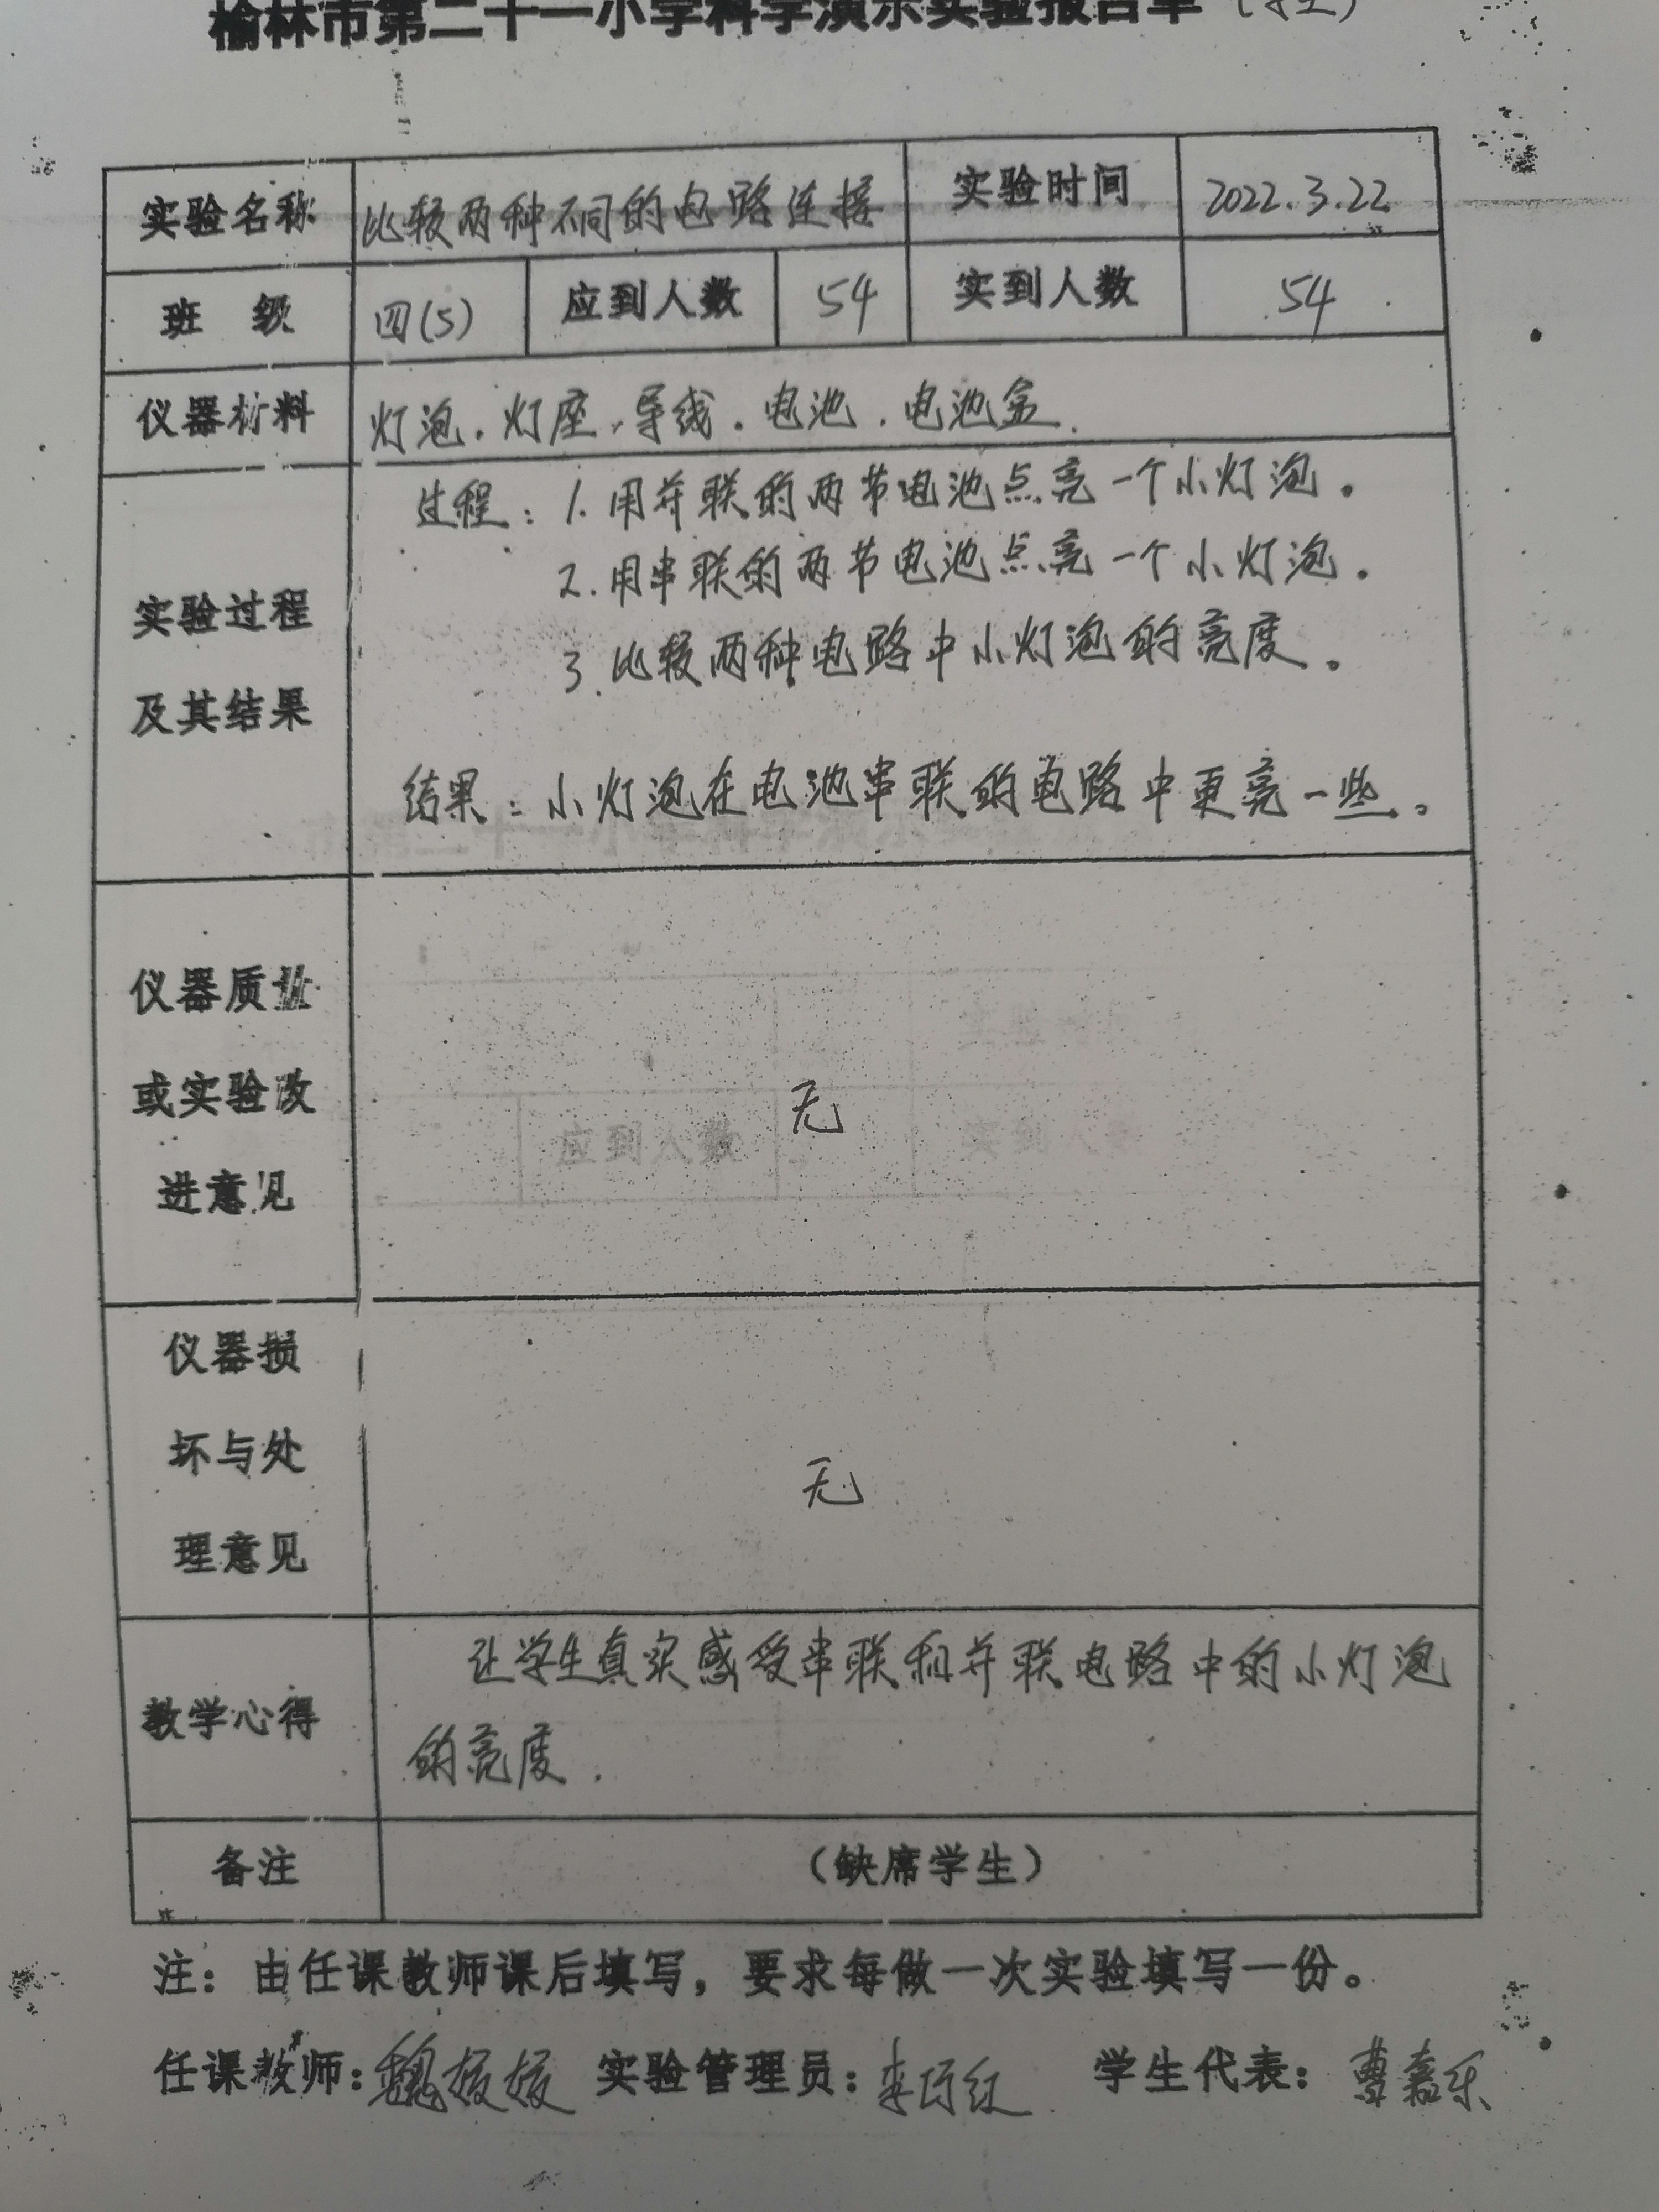 榆林市第二十一小学科学演示实验报告单
实验名称 比较两种不同的电路连接 实验时间 2022.3.22
班 级 四(5) 应到人数 54 实到人数 54
仪器材料 灯泡.灯座.导线.电池.电池盒.
过程:1.用并联的两节电池点亮一个小灯泡。
2.用串联的两节电池点亮一个小灯泡。
实验过程
3.比较两种电路中小灯泡的亮度。
及其结果
结果:小灯泡在电池串联的电路中更亮一些。
仪器质量
或实验改
进意见
无
仪器损
坏与处
理意见
无
教学心得
让学生真实感受串联和并联电路中的小灯泡
的亮度.
备注 (缺席学生)
注：由任课教师课后填写，要求每做一次实验填写一份。
任课教师:魏媛媛 实验管理员:李巧红 学生代表:曹嘉乐